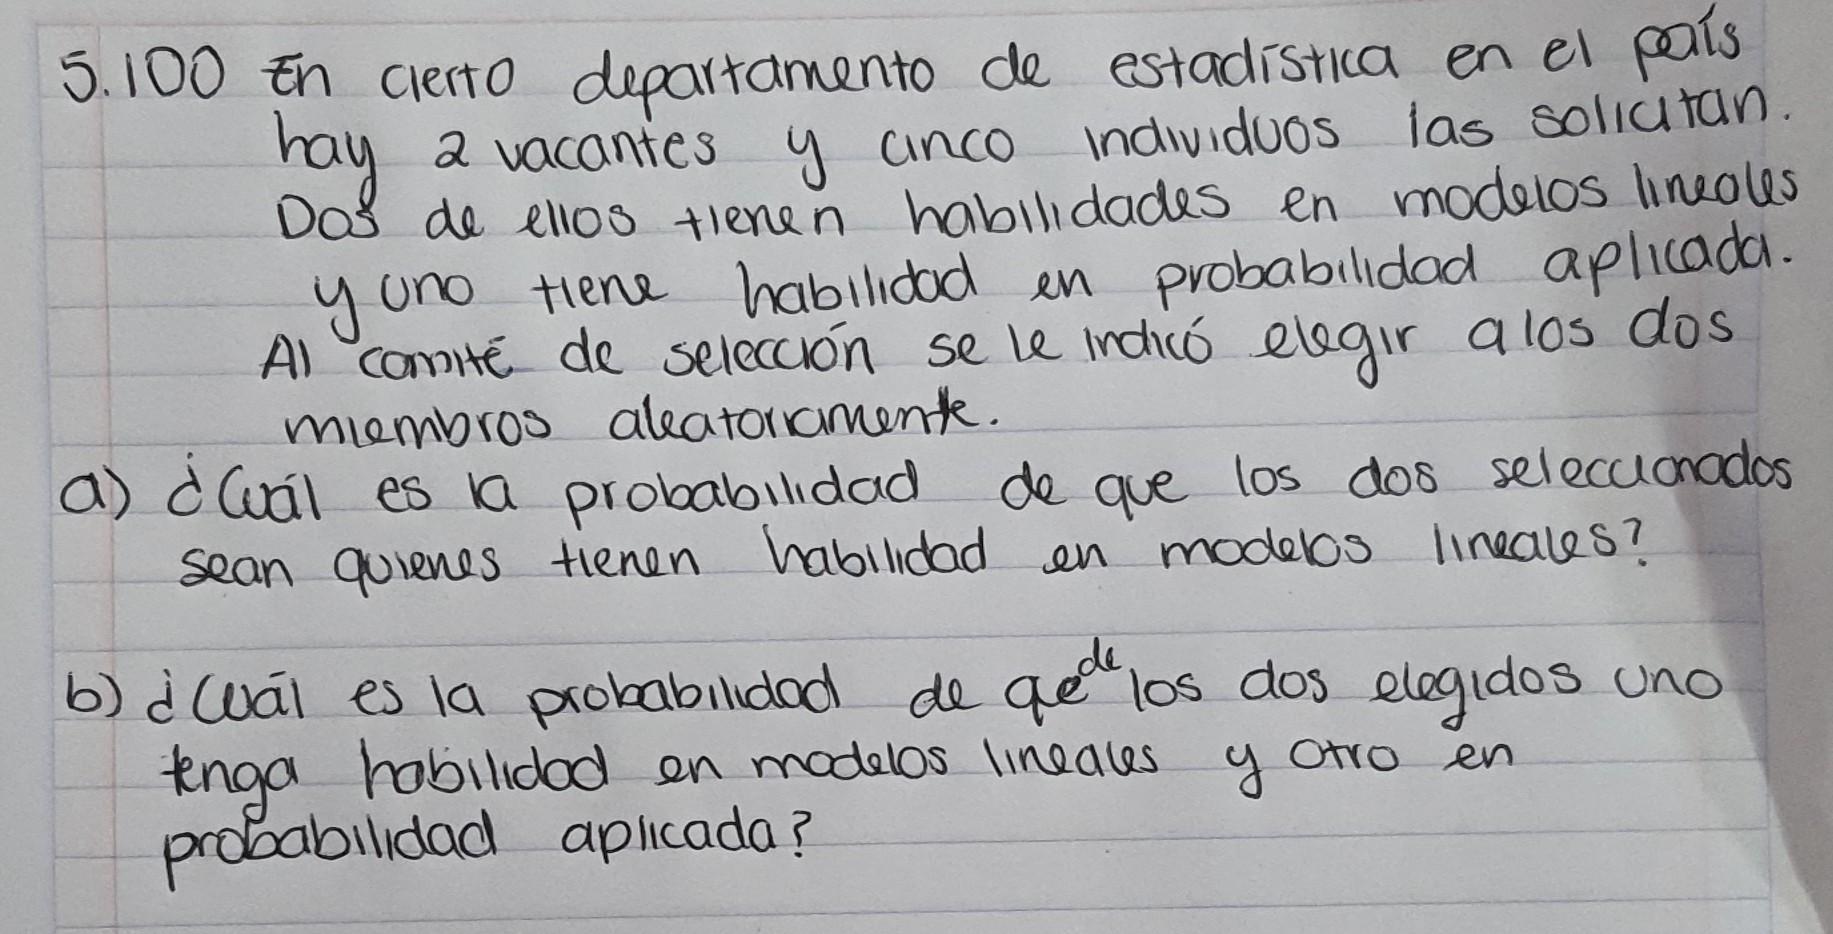 5.100 En cierto departamento de estadística en el país
hay 2 vacantes y cinco individuos las solicitan.
Dos de ellos tienen habilidades en modelos lineales
y uno tiene habilidad en probabilidad aplicada.
Al comité de selección se le indicó elegir a los dos
miembros aleatoriamente.
a) ¿Cuál es la probabilidad de que los dos seleccionados
sean quienes tienen habilidad en modelos lineales?
b) ¿Cuál es la probabilidad de qe de los dos elegidos uno
tenga habilidad en modelos lineales y otro en
probabilidad aplicada?